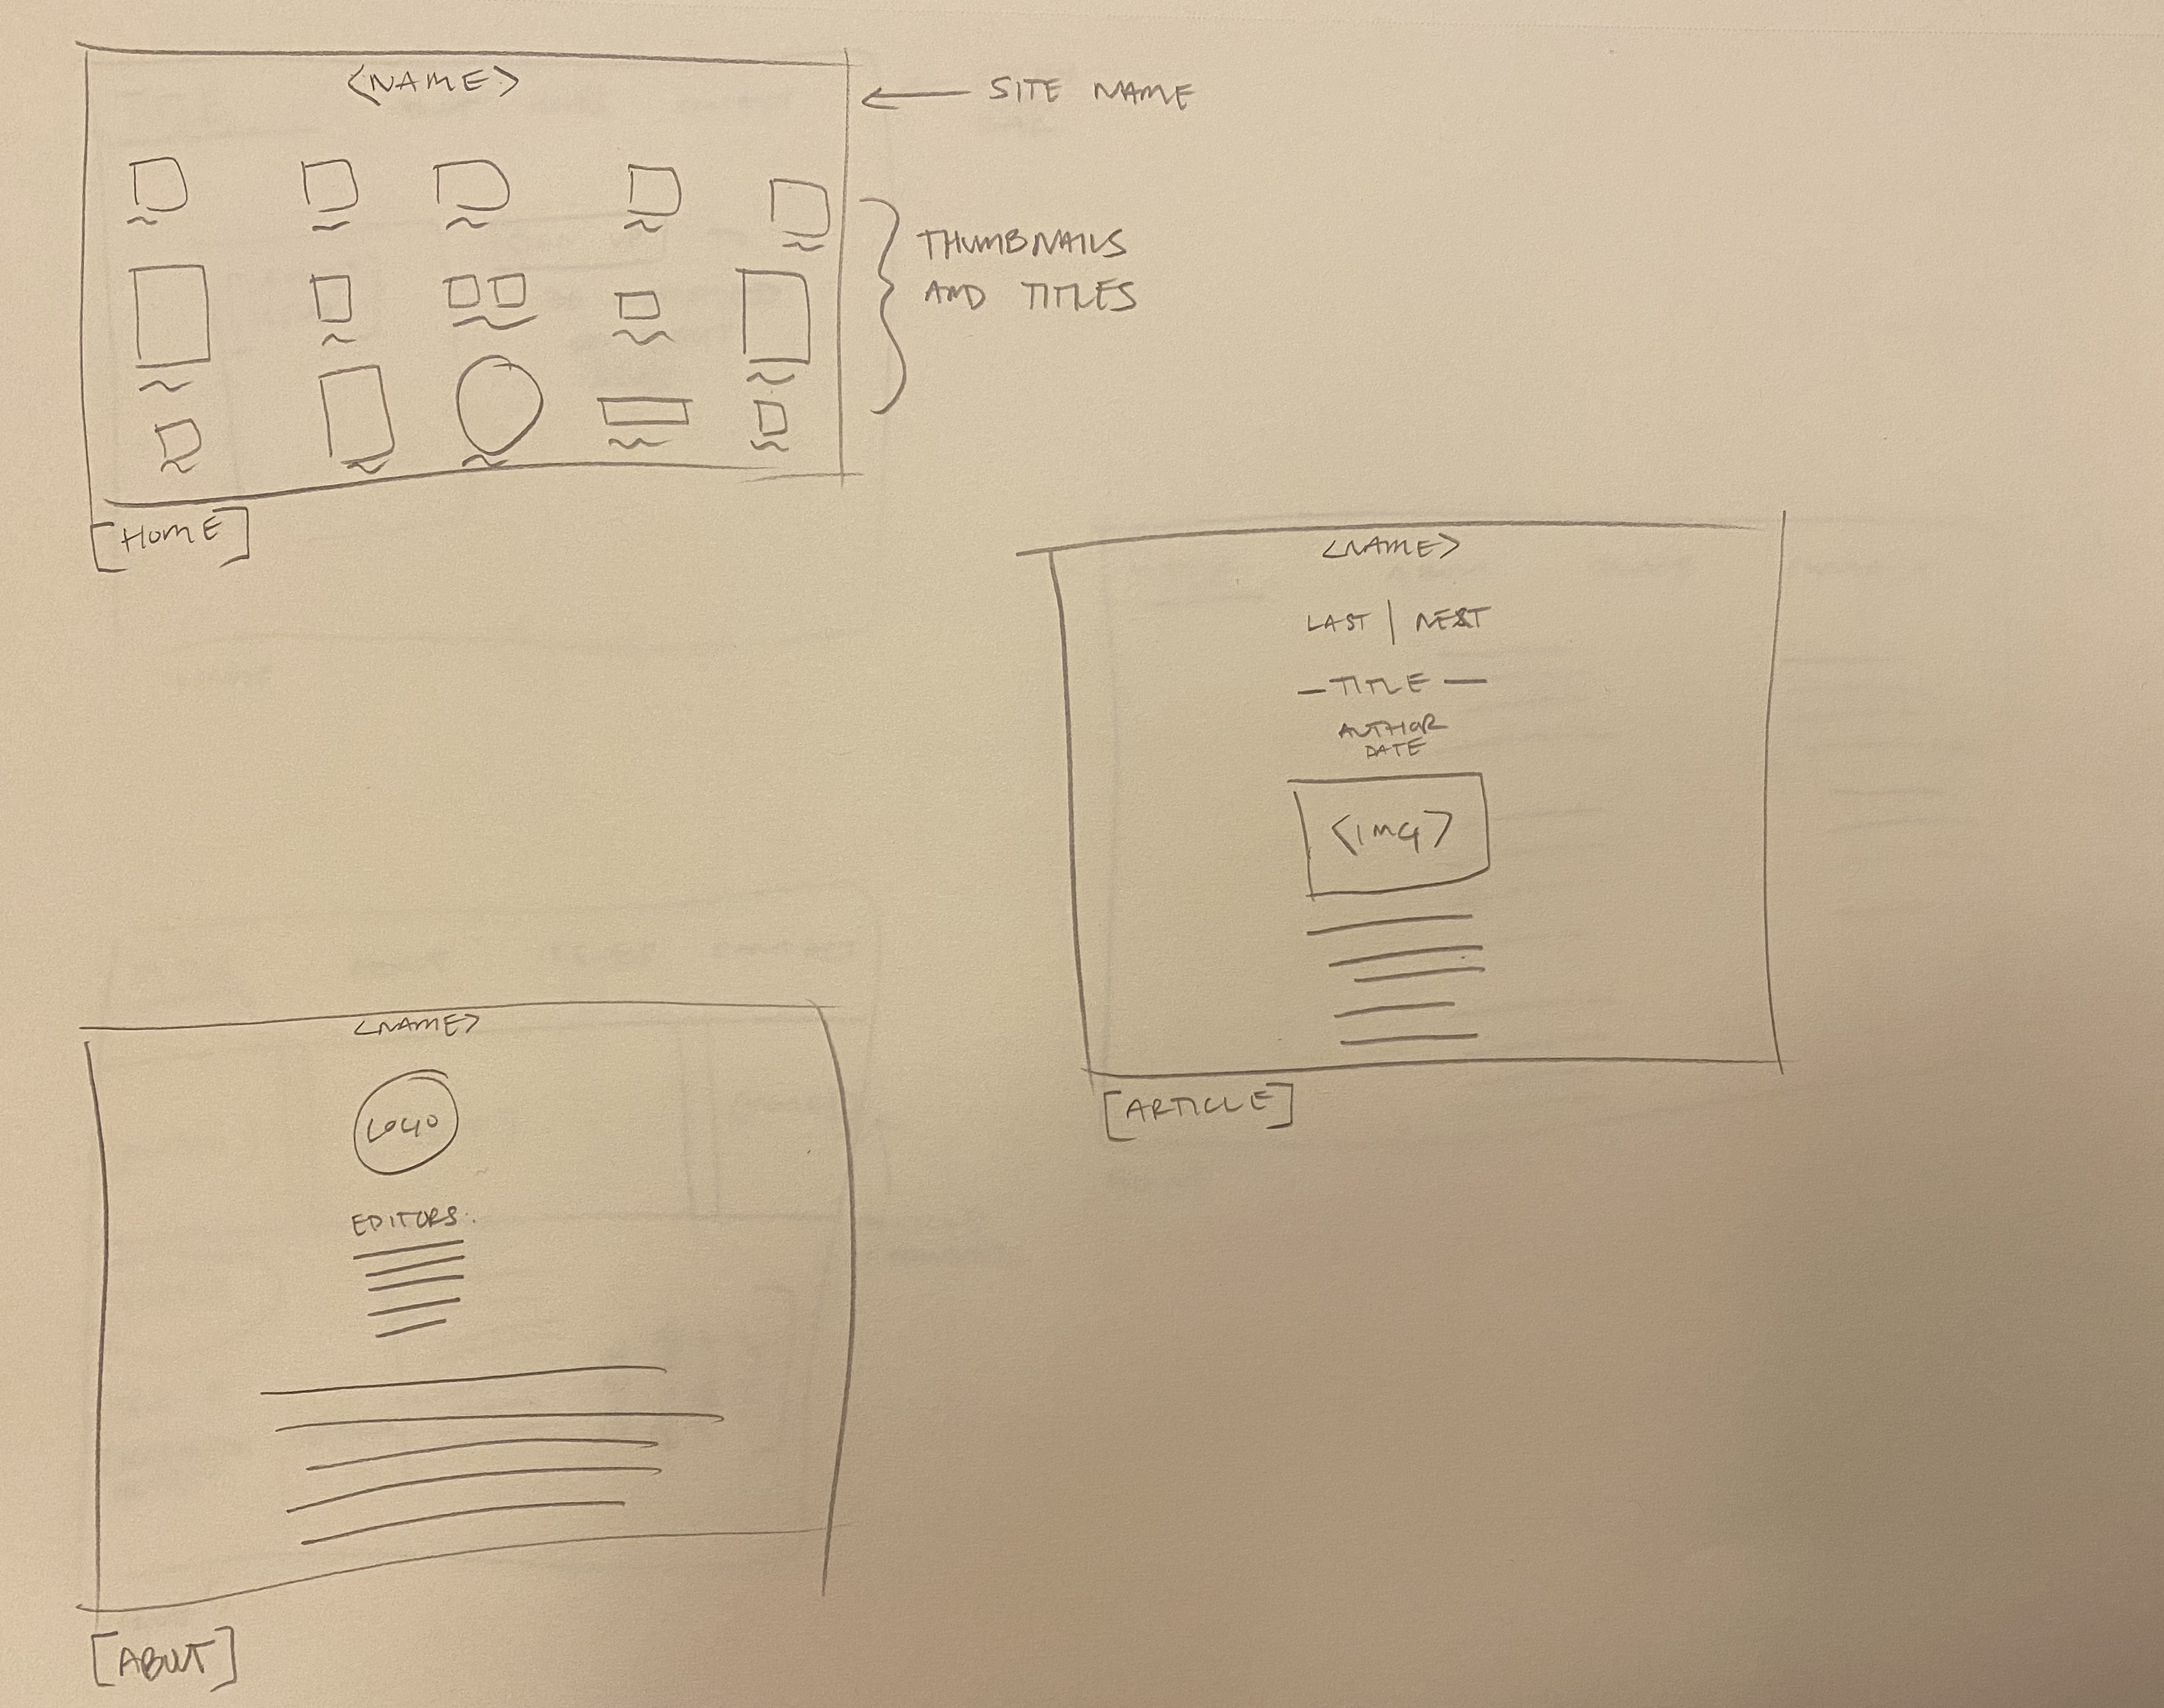 <NAME>
SITE NAME
THUMBNAILS
AND TITLES
[HOME]
<NAME>
LAST | NEXT
- TITLE -
AUTHOR
DATE
<IMG>
[ARTICLE]
<NAME>
LOGO
EDITORS:
[ABOUT]